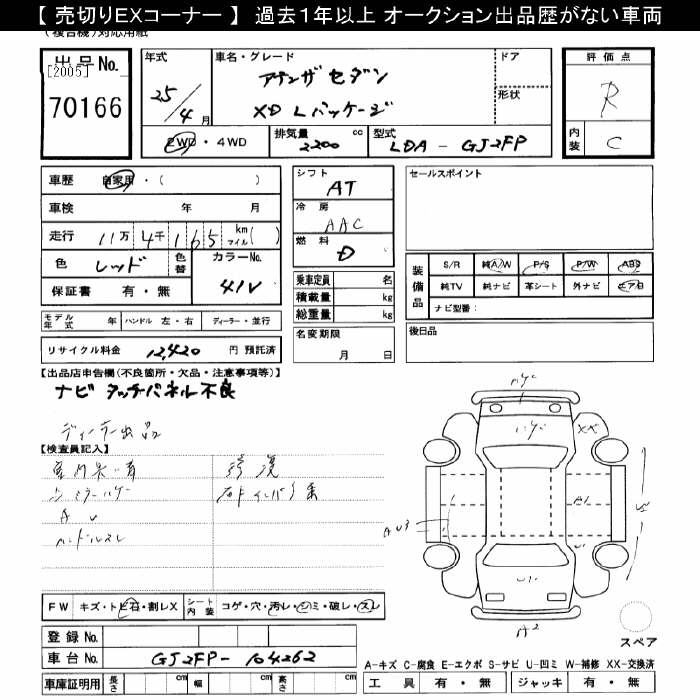 【 売切りEXコーナー 】 過去１年以上 オークション出品歴がない車両
(複合機)対応用紙
出品No.
[2005]
70166
年式
25/4月
車名・グレード
アテンザ セダン
XD Lパッケージ
ドア
形状
評価点
R
内装
C
2WD・4WD
排気量
2200 cc
型式
LDA - GJ2FP
車歴
自家用・( )
車検
年 月
走行
11万4千165 km マイル( )
色
レッド
色替
カラーNo.
41V
保証書 有・無
モデル年式 年
ハンドル 左・右
ディーラー・並行
リサイクル料金 12,420 円 預託済
シフト
AT
冷房
AAC
燃料
D
乗車定員 名
積載量 kg
総重量 kg
名変期限
月 日
セールスポイント
装備品
S/R 純A/W P/S P/W ABS
純TV 純ナビ 革シート 外ナビ エアB
ナビ型番:
後日品
【出品店申告欄(不良箇所・欠品・注意事項等)】
ナビ タッチパネル不良
ディーラー出品
【検査員記入】
ハンドルスレ
FW キズ・トビ石・割レX
シート内装 コゲ・穴・汚レ・シミ・破レ・スレ
XX
A1
AU3
A2
スペア
登録 No.
車台 No. GJ2FP- 104262
車庫証明用 長さ cm 幅 cm 高さ cm
A-キズ C-腐食 E-エクボ S-サビ U-凹ミ W-補修 XX-交換済
工具 有・無 ジャッキ 有・無